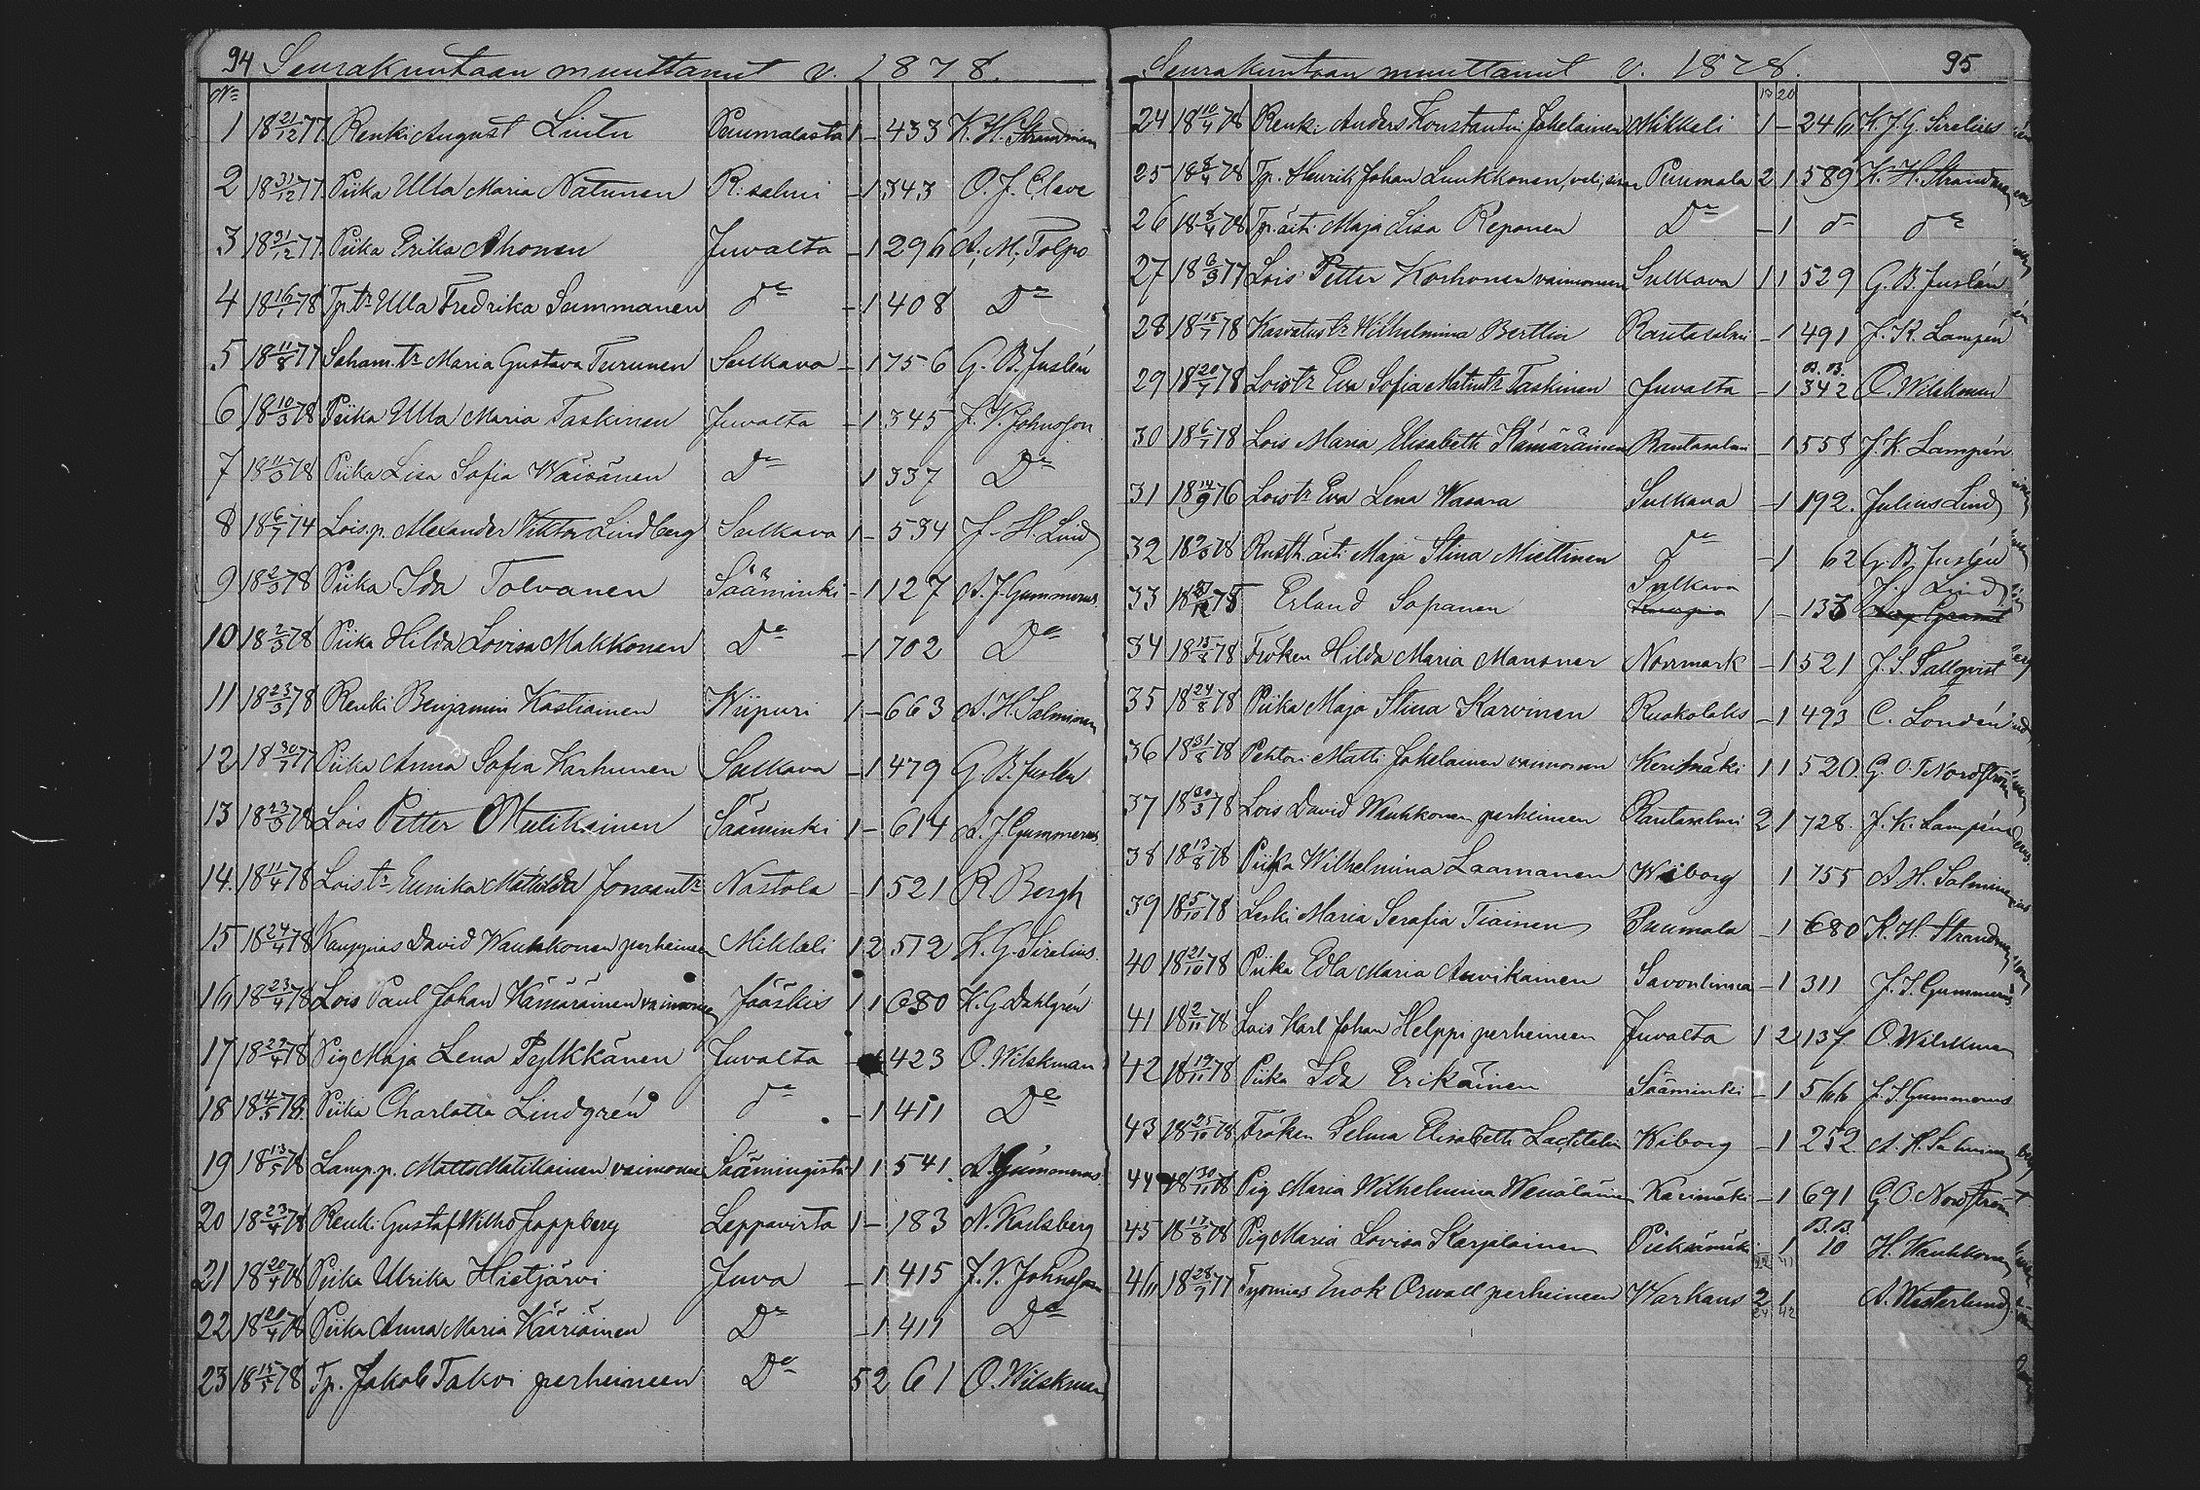 94 Seurakuntaan muuttanut v. 1878.
No
1 18 21/12 77 Renki August Liutu Puumalasta 1 - 433 K. H. Strandman
2 18 31/12 77 Piika Ulla Maria Natunen R:salmi - 1 343 O. J. Cleve
3 18 31/12 77 Piika Erika Ahonen Juvalta - 1 296 A. M. Tolpo
4 18 16/1 78 Tp. tr Ulla Fredrika Summanen Do - 1 408 Do
5 18 11/8 77 Saham. tr Maria Gustava Turunen Sulkava - 1 756 G. B. Juslén
6 18 10/3 78 Piika Ulla Maria Taskinen Juvalta - 1 345 J. V. Johnsson
7 18 11/3 78 Piika Lisa Sofia Wäisänen Do 1 337 Do
8 18 6/7 74 Lois.p. Alexander Viktor Lindberg Sulkava 1 - 534 J. H. Lind
9 18 2/3 78 Piika Ida Tolvanen Sääminki - 1 127 A. J. Gummerus
10 18 2/3 78 Piika Hilda Lovisa Makkonen Do - 1 702 Do
11 18 23/3 78 Renki Benjamin Kostiainen Wiipuri 1 - 663 A. H. Salminen
12 18 30/7 77 Piika Anna Sofia Karhunen Sulkava - 1 479 G. B. Juslén
13 18 23/3 78 Lois Petter Mutikainen Sääminki 1 - 614 A. J. Gummerus
14. 18 11/4 78 Lois tr Eunika Matilda Jonaantr Nastola - 1 521 R. Bergh
15 18 24/4 78 Kauppias David Wauhkonen perheineen Mikkeli 1 2 512 K. G. Sirelius.
16 18 23/4 78 Lois Paul Johan Kämäräinen vaimoneen Jääskis 1 1 680 K. G. Dahlgrén
17 18 27/4 78 Pig Maja Lena Pylkkänen Juvalta 423 O. Wilskman
18 18 14/5 78. Piika Charlotta Lindgrén Do - 1 411 Do
19 18 13/5 78 Lamp.p. Matts Matikainen vaimoneen Säämingistä 1 1 541. A. Gummerus
20 18 23/4 78 Renki Gustaf Wilho Joppberg Leppävirta 1 - 183 N. Karlsberg
21 18 20/4 78 Piika Ulrika Hietjärvi Juva - 1 415 J. V. Johnsson
22 18 20/4 78 Piika Anna Maria Kääriäinen Do - 1 411 Do
23 18 15/5 78 Tp. Jakob Takoi perheineen Do 5 2 61 O. Wilskman
Seurakuntaan muuttanut v. 1878. 95
24 18 10/4 78 Renki Anders Konstantin Jokelainen Mikkeli 1 - 246 K. J. G. Sirelius
25 18 8/4 78 Tp. Henrik Johan Luukkonen, veli, sisar Puumala 2 1 589 K. H. Strandman
26 18 8/4 78 Tp. äiti Maja Lisa Reponen Do - 1 Do Do
27 18 6/9 77 Lois Petter Korhonen vaimoneen Sulkava 1 1 529 G. B. Juslén
28 18 15/7 78 Kasvatus tr Wilhelmina Berttin Rantasalmi - 1 491 J. K. Lampén
29 18 20/7 78 Lois tr Eva Sofia Matintr Taskinen Juvalta - 1 B.B. 342 O. Wilskman
30 18 6/7 78 Lois Maria Elisabeth Kämäräinen Rantasalmi - 1 558 J. K. Lampén
31 18 14/9 76 Lois tr Eva Lena Wasara Sulkava - 1 192. Julius Lind
32 18 78 Rusth. äiti Maja Stina Miettinen Do - 1 62 G. B. Juslén
33 18 78 Erland Sopanen Sulkava 1 - 133 J. Lind
34 18 15/8 78 Fröken Hilda Maria Mansner Norrmark - 1 521 J. S. Tallqvist
35 18 24/8 78 Piika Maja Stina Karvinen Ruokolaks - 1 493 C. Londén
36 18 31/8 78 Pehtori Matti Jokelainen vaimoneen Kerimäki 1 1 520 G. O. T. Nordström
37 18 30/3 78 Lois David Wauhkonen perheineen Rantasalmi 2 1 728. J. K. Lampén
38 18 13/8 78 Piika Wilhelmina Laamanen Wiborg 1 755 A. H. Salminen
39 18 5/10 78 Leski Maria Serafia Tiainen Puumala - 1 680 K. H. Strandman
40 18 21/10 78 Piika Edla Maria Auvikainen Savonlinna - 1 311 J. S. Gummerus
41 18 2/11 78 Lois Karl Johan Helppi perheineen Juvalta 1 2 137 O. Wilskman
42 18 19/11 78 Piika Ida Erikäinen Sääminki - 1 566 J. S. Gummerus
43 18 25/10 78 Fröken Selma Elisabeth Wiborg - 1 252. A. H. Salminen
44 18 30/11 78 Pig Maria Wilhelmina Wenäläinen Kerimäki - 1 691 G. O. Nordström
45 18 17/8 78 Pig Maria Lovisa Karjalainen Pieksämäki 1 B.B. 10 H. Wauhkonen
46 18 28/9 77 Työmies Enok Orwall perheineen Warkaus 2 1 A. Westerlund